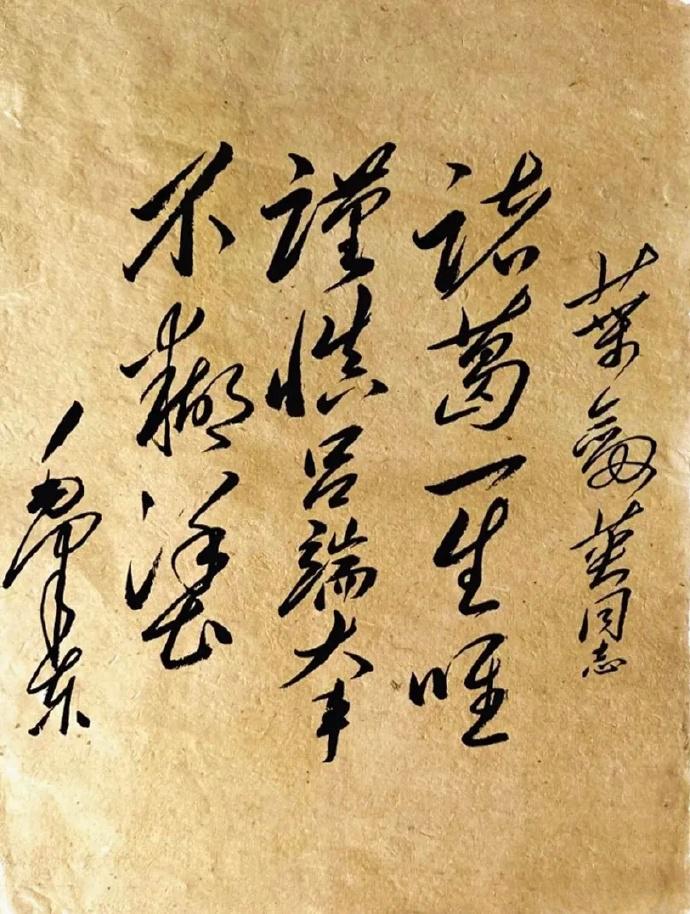 葉劍英同志
諸葛一生唯
謹慎呂端大事
不糊塗
毛澤東